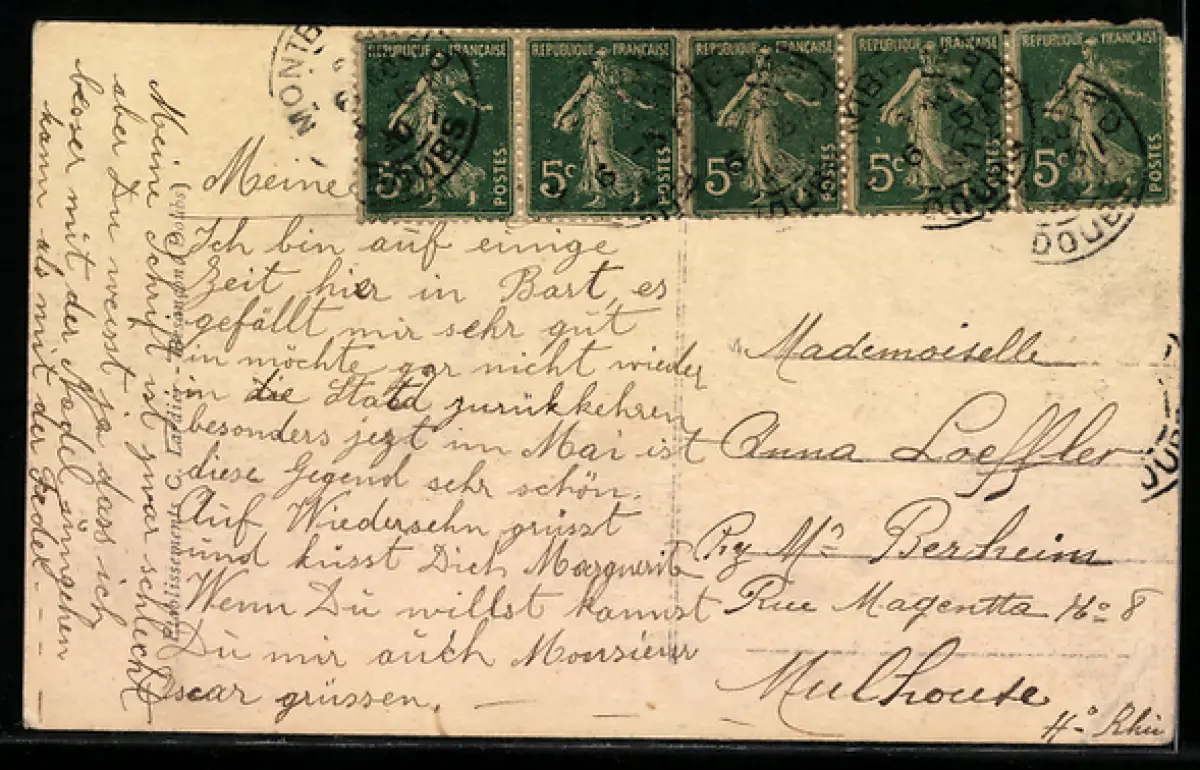 REPUBLIQUE FRANÇAISE
5c POSTES
REPUBLIQUE FRANÇAISE
5c POSTES
REPUBLIQUE FRANÇAISE
5c POSTES
REPUBLIQUE FRANÇAISE
5c POSTES
REPUBLIQUE FRANÇAISE
5c POSTES
MONTB
DOUBS
DOUBS
DOUBS
Meine
Ich bin auf einige
Zeit hier in Bart, es
gefällt mir sehr gut
in möchte gar nicht wieder
in die Statd zurükkehren
besonders jezt im Mai ist
diese Gegend sehr schön.
Auf Wiedersehn grüsst
und küsst Dich Marguerite
Wenn Du willst kannst
Du mir auch Monsieur
Oscar grüssen.
Meine Schrift ist zwar schlecht
aber Du weisst ja dass ich
besser mit der Nadel umgehen
kann als mit der Feder
Etablissements C. Lardier - Besançon (Doubs)
Mademoiselle
Anna Loeffler
Mª Berheim
Rue Magentta No 8
Mulhouse
Hº Rhin